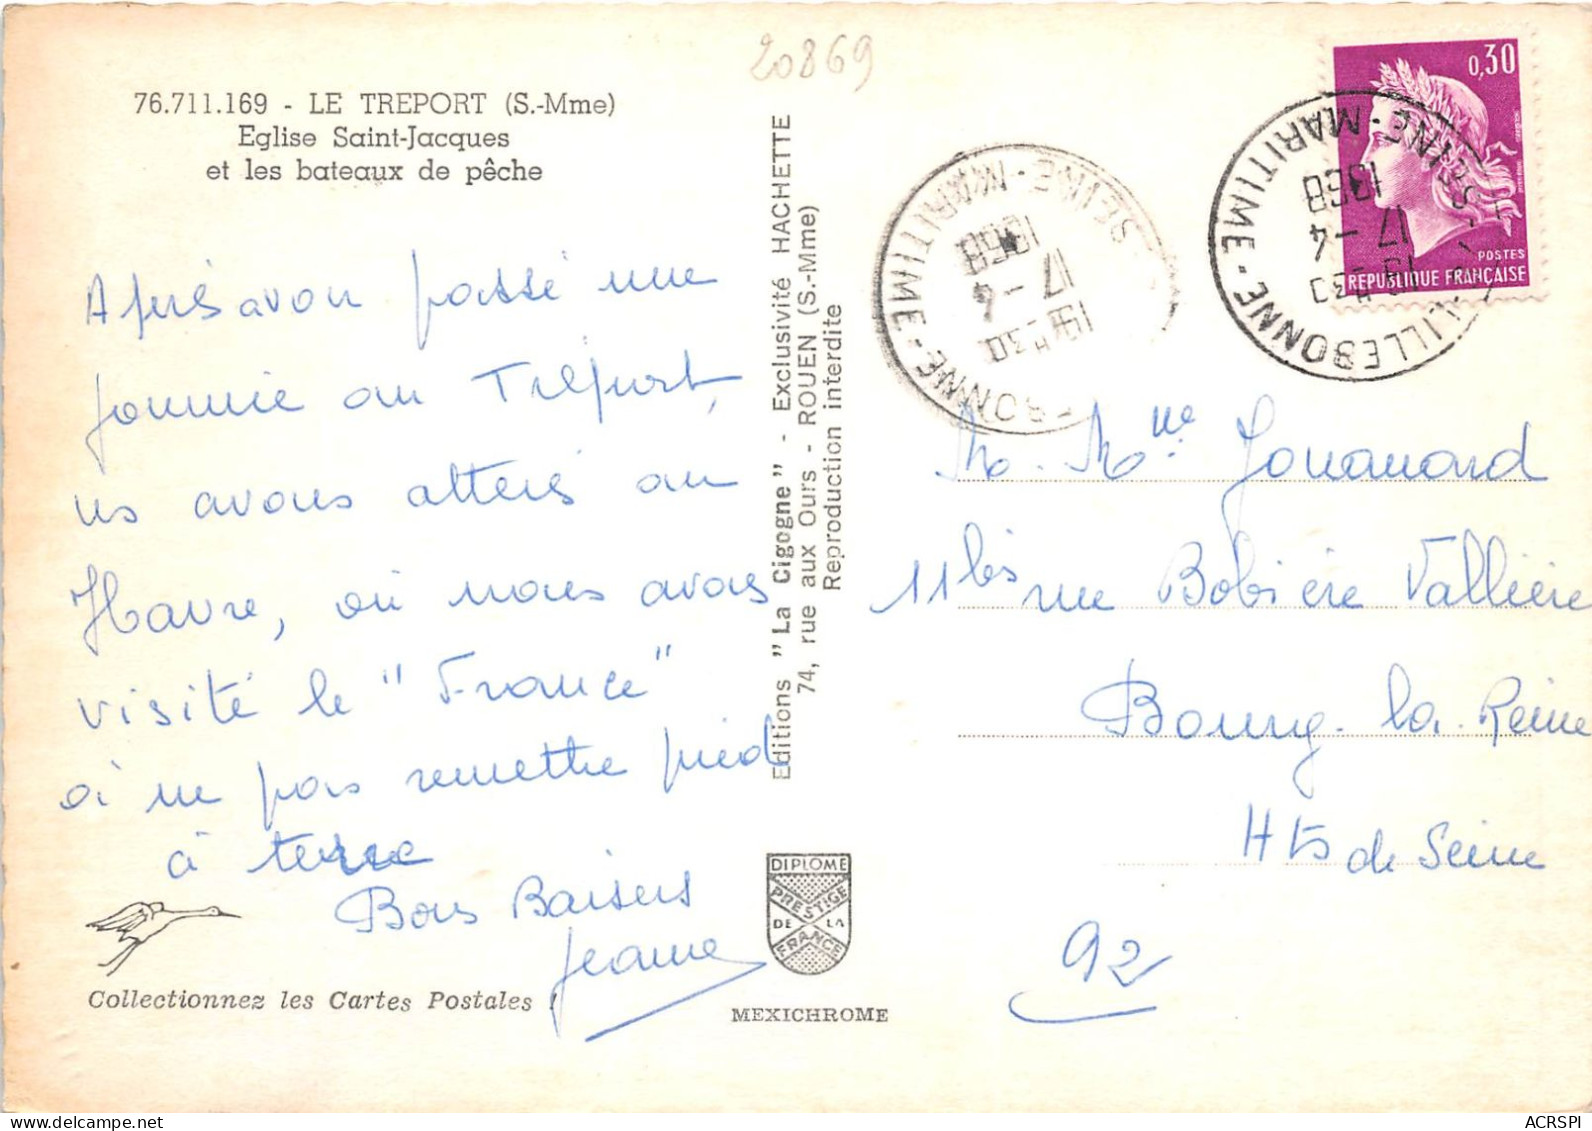 20869
76.711.169 - LE TREPORT (S.-Mme)
Eglise Saint-Jacques
et les bateaux de pêche
Après avoir passé une
journée au Tréport,
ns avons atteri au
Havre, où nous avons
visité le "France"
à ne pas remettre pied
à terre
Bons Baisers
Jeanne
Collectionnez les Cartes Postales !
Editions "La Cigogne" - Exclusivité HACHETTE
74, rue aux Ours - ROUEN (S.-Mme)
Reproduction interdite
DIPLOME
PRESTIGE
DE LA
FRANCE
MEXICHROME
BONNE - SEINE-MARITIME
19H30
17 - 4
1968
LILLEBONNE - SEINE-MARITIME
19H30
17 - 4
1968
0,30
POSTES
REPUBLIQUE FRANÇAISE
M. Mme Jouanard
11bis rue Bobière Vallière
Bourg-la-Reine
Hts de Seine
92
ACRSPI